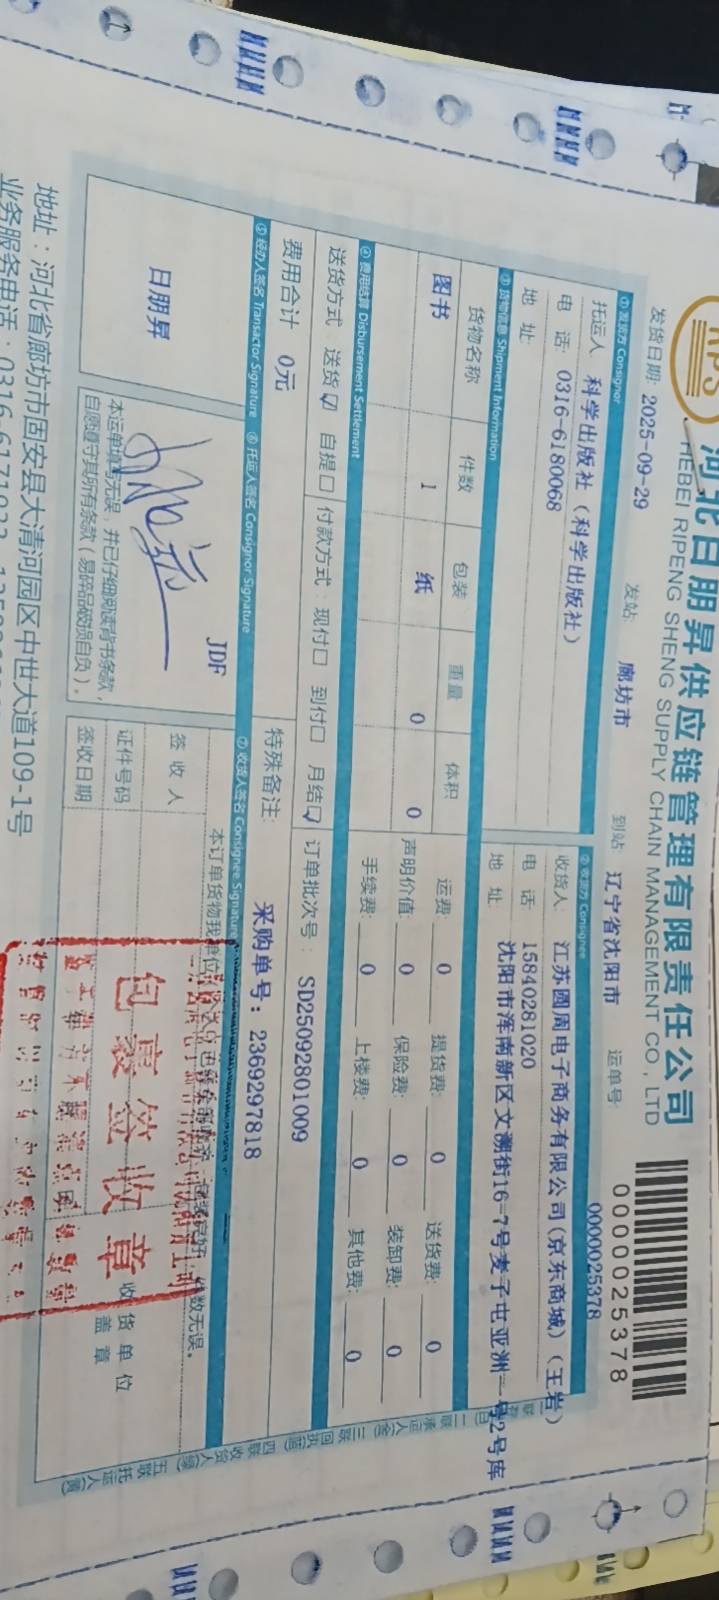 河北日朋昇供应链管理有限责任公司
HEBEI RIPENG SHENG SUPPLY CHAIN MANAGEMENT CO., LTD
0000025378
发货日期: 2025-09-29 发站: 廊坊市 到站: 辽宁省沈阳市 运单号: 0000025378
① 发货方 Consignor ② 收货方 Consignee
托运人: 科学出版社（科学出版社） 收货人: 江苏圆周电子商务有限公司(京东商城)（王岩）
电 话: 0316-6180068 电 话: 15840281020
地 址: 地 址: 沈阳市浑南新区文溯街16-7号麦子屯亚洲一号2号库
③ 货物信息 Shipment Information
货物名称 件数 包装 重量 体积 运费: 0 提货费: 0 送货费: 0
图书 1 纸 0 0 声明价值: 0 保险费: 0 装卸费: 0
手续费: 0 上楼费: 0 其他费: 0
④ 费用结算 Disbursement Settlement
送货方式: 送货☑ 自提□ 付款方式: 现付□ 到付□ 月结☑ 订单批次号: SD25092801009
费用合计 0元 特殊备注: 采购单号: 2369297818
⑤ 经办人签名 Transactor Signature ⑥ 托运人签名 Consignor Signature ⑦ 收货人签名 Consignee Signature
日朋昇
JDF
本运单填写无误，并已仔细阅读背书条款，
自愿遵守其所有条款（易碎品破损自负）。
本订单货物我单位 数无误。
签 收 人
证件号码
签收日期
收货单位
盖 章
包裹签收章
地址：河北省廊坊市固安县大清河园区中世大道109-1号
业务服务电话：0316-6171933